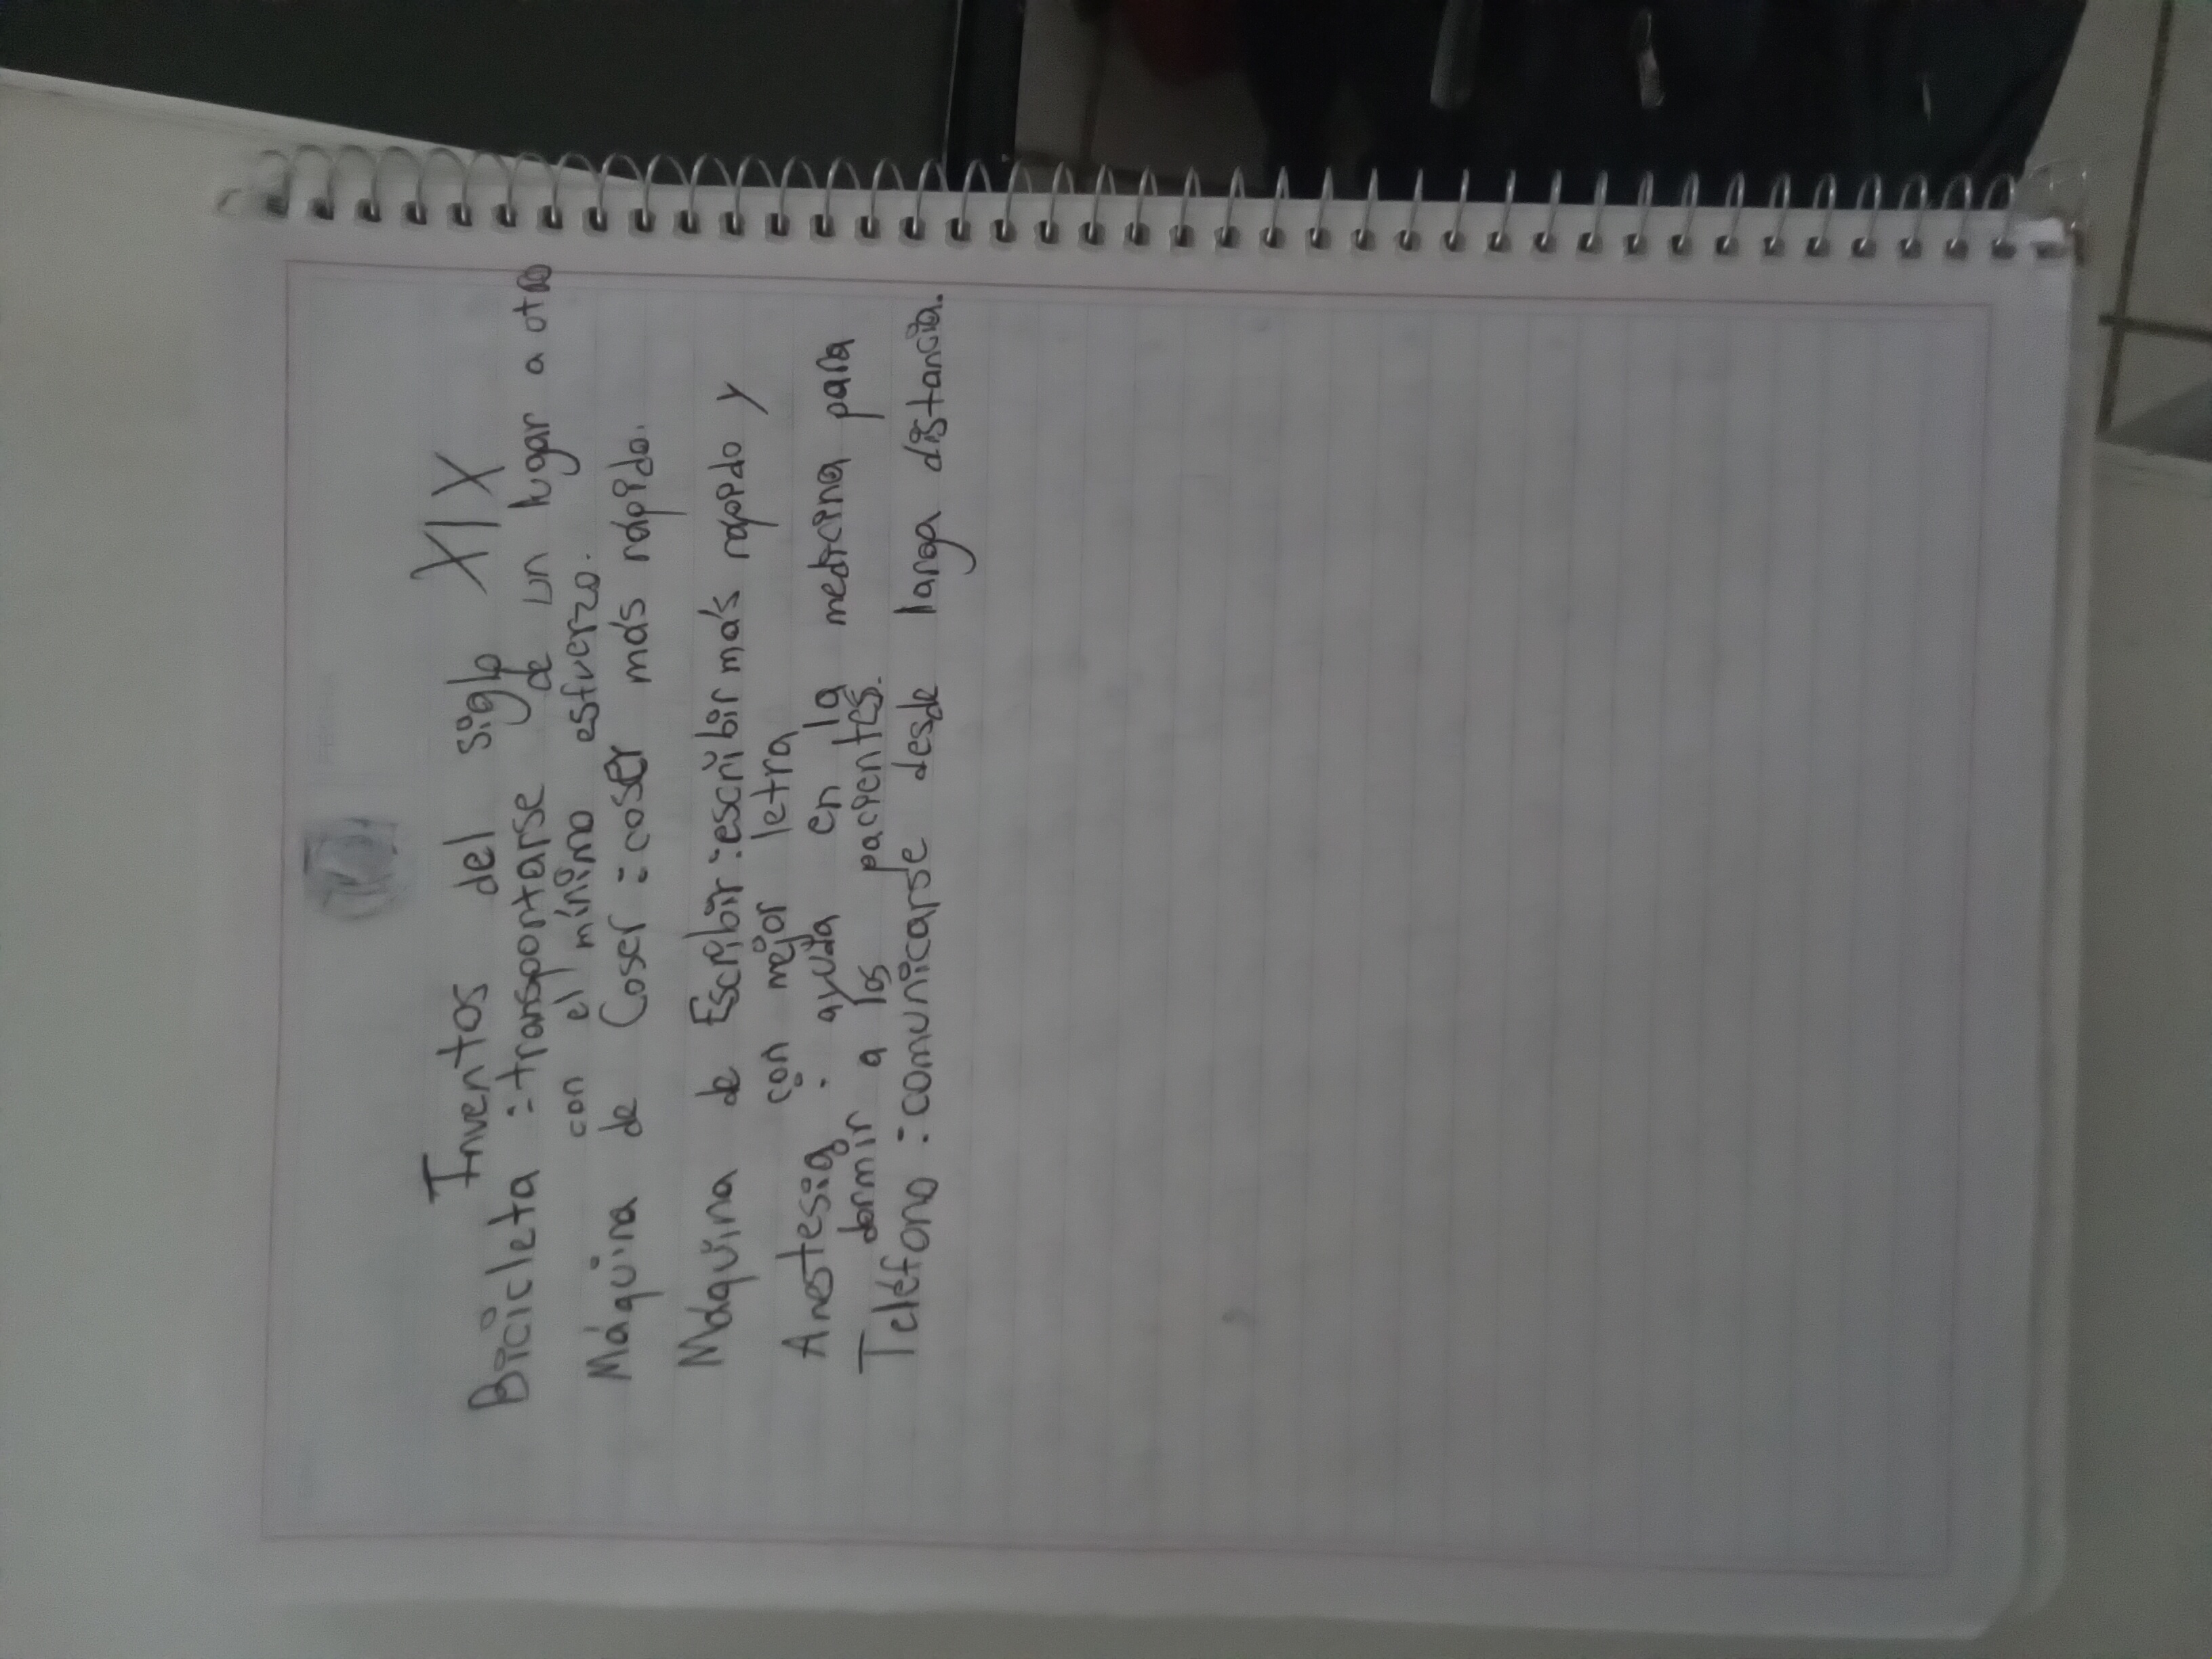 Inventos del siglo XIX
Bicicleta : transportarse de un lugar a otro
con el mínimo esfuerzo.
Máquina de Coser : coser más rápido.
Máquina de Escribir : escribir más rapido y
con mejor letra
Anestesia : ayuda en la medicina para
dormir a los pacientes.
Teléfono : comunicarse desde larga distancia.